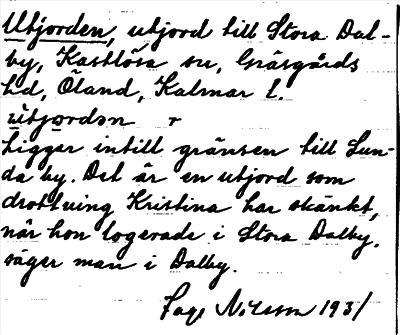 Utjorden, utjord till Stora Dal-
by, Kastlösa sn, Gräsgårds
hd, Öland, Kalmar l.
ùtjo̱rdən r
Ligger intill gränsen till Lun-
da by. Det är en utjord som
drottning Kristina har skänkt,
när hon logerade i Stora Dalby.
säger man i Dalby.
Sage Nilsson 1931